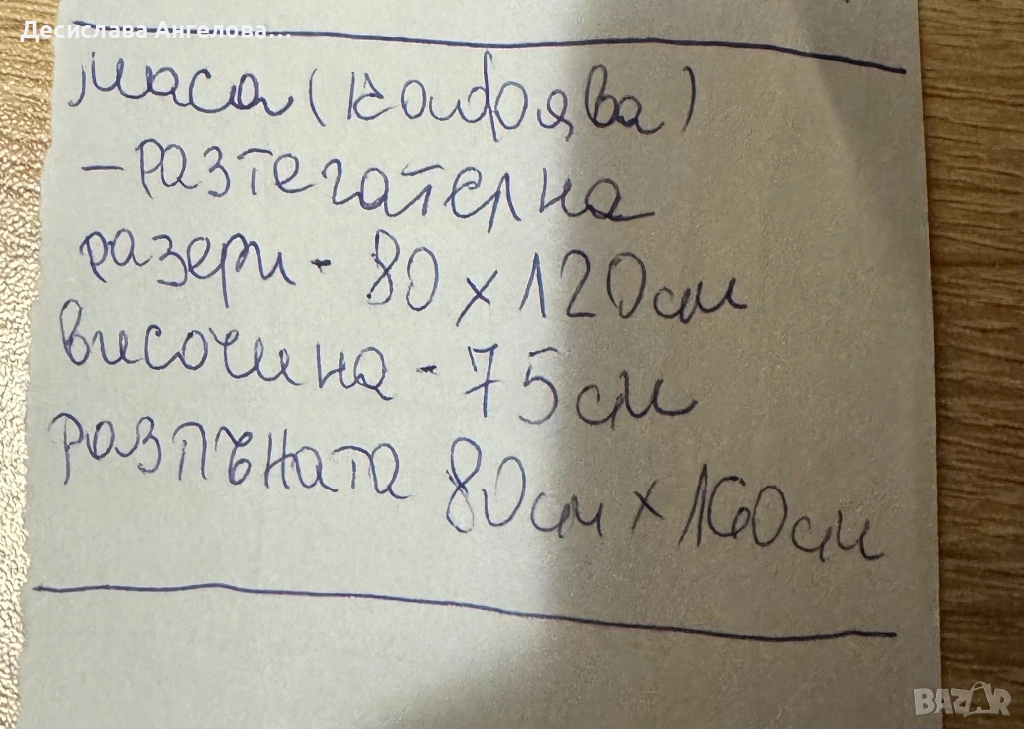 Десислава Ангелова...
маса (кафява)
- разтегателна
разери - 80 x 120 см
височина - 75 см
разпъната 80 см x 160 см
BAZAR